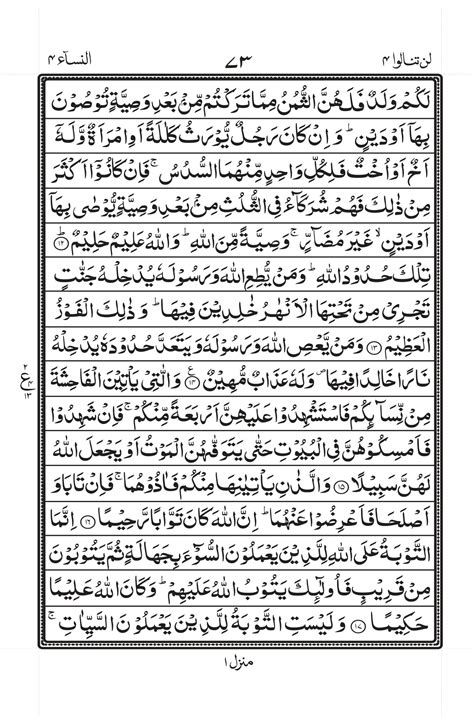 لن تنالوا ٤ ٧٣ النسآء ٤
لَكُمْ وَلَدٌ فَلَهُنَّ الثُّمُنُ مِمَّا تَرَكْتُمْ مِّنْۢ بَعْدِ وَصِيَّةٍ تُوْصُوْنَ
بِهَاۤ اَوْ دَيْنٍ ؕ وَ اِنْ كَانَ رَجُلٌ يُّوْرَثُ كَلٰلَةً اَوِ امْرَاَةٌ وَّ لَهٗۤ
اَخٌ اَوْ اُخْتٌ فَلِكُلِّ وَاحِدٍ مِّنْهُمَا السُّدُسُ ۚ فَاِنْ كَانُوْۤا اَكْثَرَ
مِنْ ذٰلِكَ فَهُمْ شُرَكَآءُ فِي الثُّلُثِ مِنْۢ بَعْدِ وَصِيَّةٍ يُّوْصٰى بِهَاۤ
اَوْ دَيْنٍ ۙ غَيْرَ مُضَآرٍّ ۚ وَصِيَّةً مِّنَ اللّٰهِ ؕ وَ اللّٰهُ عَلِيْمٌ حَلِيْمٌ ؕ ۝۱۲
تِلْكَ حُدُوْدُ اللّٰهِ ؕ وَ مَنْ يُّطِعِ اللّٰهَ وَ رَسُوْلَهٗ يُدْخِلْهُ جَنّٰتٍ
تَجْرِيْ مِنْ تَحْتِهَا الْاَنْهٰرُ خٰلِدِيْنَ فِيْهَا ؕ وَ ذٰلِكَ الْفَوْزُ
الْعَظِيْمُ ۝۱۳ وَ مَنْ يَّعْصِ اللّٰهَ وَ رَسُوْلَهٗ وَ يَتَعَدَّ حُدُوْدَهٗ يُدْخِلْهُ
نَارًا خَالِدًا فِيْهَا ۪ وَ لَهٗ عَذَابٌ مُّهِيْنٌ ۝۱۴ ع وَ الّٰتِيْ يَاْتِيْنَ الْفَاحِشَةَ
٢ ع ٤ ١٣
مِنْ نِّسَآىِٕكُمْ فَاسْتَشْهِدُوْا عَلَيْهِنَّ اَرْبَعَةً مِّنْكُمْ ۚ فَاِنْ شَهِدُوْا
فَاَمْسِكُوْهُنَّ فِي الْبُيُوْتِ حَتّٰى يَتَوَفّٰهُنَّ الْمَوْتُ اَوْ يَجْعَلَ اللّٰهُ
لَهُنَّ سَبِيْلًا ۝۱۵ وَ الَّذٰنِ يَاْتِيٰنِهَا مِنْكُمْ فَاٰذُوْهُمَا ۚ فَاِنْ تَابَا وَ
اَصْلَحَا فَاَعْرِضُوْا عَنْهُمَا ؕ اِنَّ اللّٰهَ كَانَ تَوَّابًا رَّحِيْمًا ۝۱۶ اِنَّمَا
التَّوْبَةُ عَلَى اللّٰهِ لِلَّذِيْنَ يَعْمَلُوْنَ السُّوْٓءَ بِجَهَالَةٍ ثُمَّ يَتُوْبُوْنَ
مِنْ قَرِيْبٍ فَاُولٰٓىِٕكَ يَتُوْبُ اللّٰهُ عَلَيْهِمْ ؕ وَ كَانَ اللّٰهُ عَلِيْمًا
حَكِيْمًا ۝۱۷ وَ لَيْسَتِ التَّوْبَةُ لِلَّذِيْنَ يَعْمَلُوْنَ السَّيِّاٰتِ ۚ
منزل ١